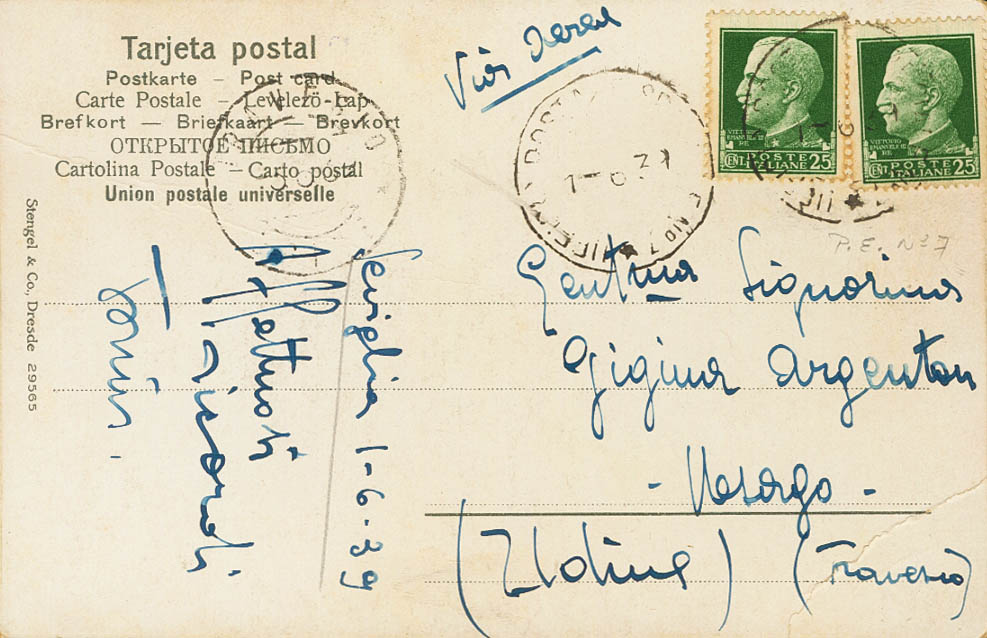 Tarjeta postal
Postkarte – Post card
Carte Postale – Levelező-Lap
Brefkort — Briefkaart — Brevkort
ОТКРЫТОЕ ПИСЬМО
Cartolina Postale – Carto postal
Union postale universelle
Stengel & Co., Dresde 29565
Via Aerea
VITTORIO EMANUELE III RE
CENT. POSTE ITALIANE 25
VITTORIO EMANUELE III RE
CENT. POSTE ITALIANE 25
1-6 39
P.E. No 7
Siviglia 1-6-39
Affettuosi
ricordi
Tonin.
Gent.ma Signorina
Gigina Argenton
(Udine) (Travesio)